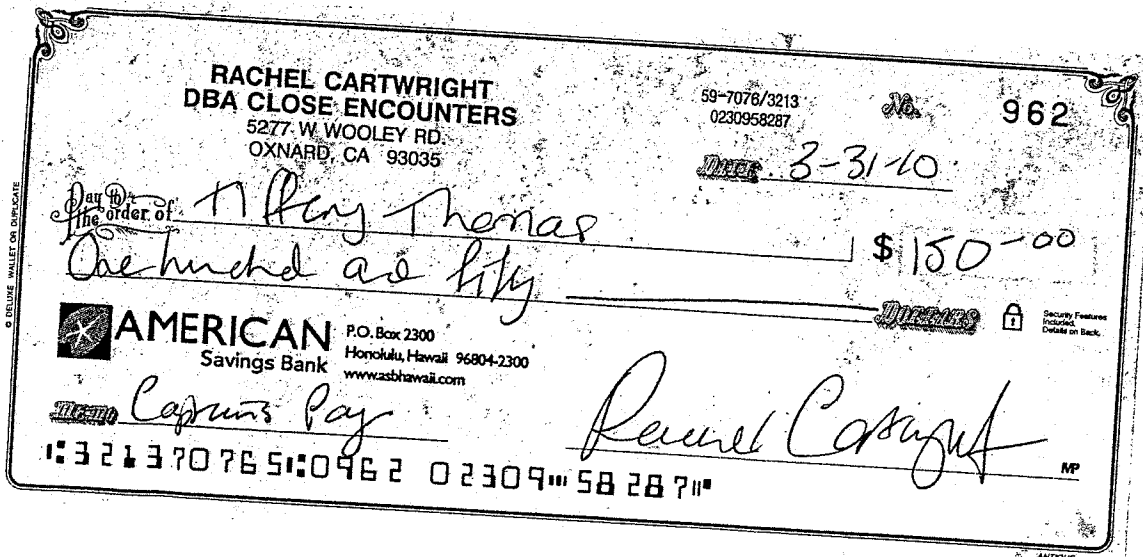 RACHEL CARTWRIGHT
DBA CLOSE ENCOUNTERS
5277 W WOOLEY RD.
OXNARD, CA 93035
59-7076/3213
0230958287
No. 962
Date 3-31-10
Pay to the order of Tiffany Thomas
$ 150-00
One hundred and fifty
DOLLARS
Security Features
Included.
Details on Back.
AMERICAN
Savings Bank
P.O. Box 2300
Honolulu, Hawaii 96804-2300
www.asbhawaii.com
Memo Captains Pay
Rachel Cartwright
MP
⑆321370765⑆0962 02309⑈58287⑈
© DELUXE WALLET OR DUPLICATE
ANTIQUE